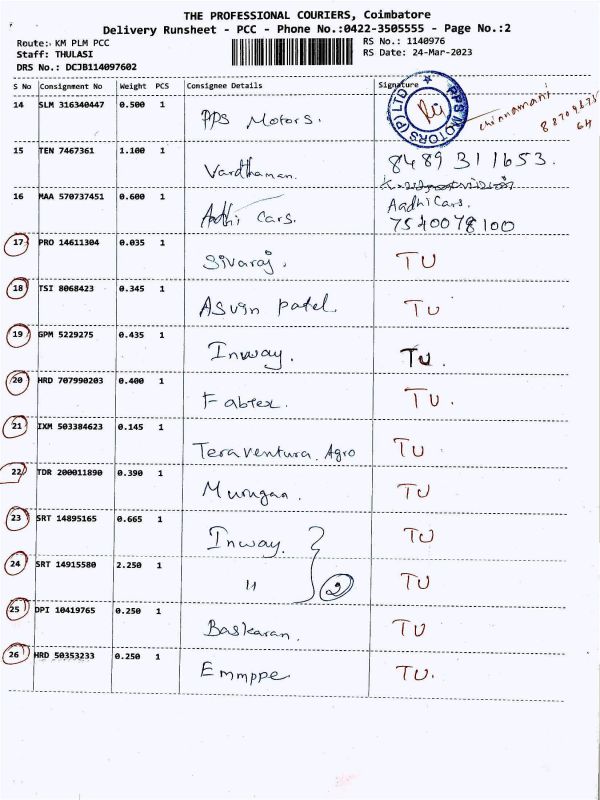 THE PROFESSIONAL COURIERS, Coimbatore
Delivery Runsheet - PCC - Phone No.:0422-3505555 - Page No.:2
Route: KM PLM PCC
RS No.: 1140976
Staff: THULASI
RS Date: 24-Mar-2023
DRS No.: DCJB114097602
S No Consignment No Weight PCS Consignee Details Signature
14 SLM 316340447 0.500 1 PPS Motors.
PPS MOTORS (P) LTD
chinnamani
15 TEN 7467361 1.100 1 Vardhaman. 8489311653.
16 MAA 570737451 0.600 1 Aadhi Cars. Aadhi Cars.
7540078100
17 PRO 14611304 0.035 1 Sivaraj. TU
18 TSI 8068423 0.345 1 Asvin patel. TU
19 GPM 5229275 0.435 1 Inway. TU.
20 HRD 707990203 0.400 1 Fabtex. TU.
21 IXM 503384623 0.145 1 Teraventura Agro TU
22 TDR 200011890 0.390 1 Murugan. TU
23 SRT 14895165 0.665 1 Inway. TU
24 SRT 14915580 2.250 1 " 2 TU
25 DPI 10419765 0.250 1 Baskaran. TU
26 HRD 50353233 0.250 1 Emmppe TU.